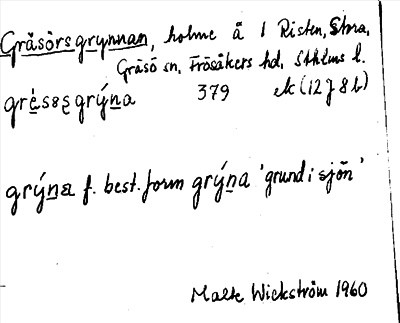 Gräsörsgrynnan, holme å I Risten, Stora,
Gräsö sn, Frösåkers hd, Sthlms l.
379 ek (12J8b)
f. best. form grýna 'grund i sjön'
Malte Wickström 1960